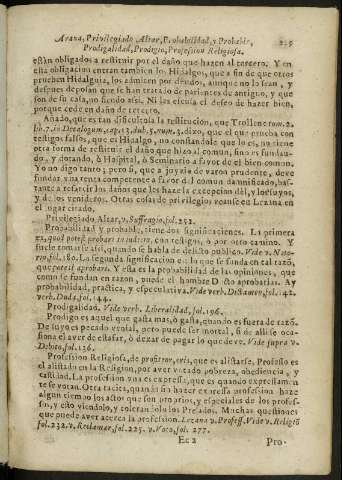 Arana, Privilegiado Altar, Probabilidad, y Probable,
Prodigalidad, Prodigio, Profession Religiosa.
estàn obligados a restituir por el daño que hazen al tercero. Y en
esta obligacion entran tambien lo. Hidalgos, que a fin de que otros
prueben Hidalguia, los admiten por deudos, aunque no lo sean, y
despues depolan que se han tratado de parientes de antiguo, y que
son de su casa, no siendo assi. Ni les escusa el deseo de hazer bien,
porque cede en daño de tercero.
Añado, que es tan dificultosa la restitucion, que Trollene tom. 2.
lib. 7. in Decalogum, cap. 13. dub. 5. num. 3. dixo, que el que prueba con
testigos falsos, que es Hidalgo, no constandole que lo es, no tiene
otra forma de restituir el daño que hizo al comun, sino es fundan-
do, y dotando, ò Hospital, ò Seminario a favor de el bien comun.
Yo no digo tanto; pero si, que a juyzio de varon prudente, deve
fundar vna renta competente a favor del comun damnificado, bas-
tante a resarcir los daños que les haze la excepcion dèl, y los suyos,
y de los venideros. Otras cosas de privilegio reaues en Lezana en
el lugar citado.
Privilegiado Altar, v. Suffragio, fol. 252.
Probabilidad y probable, tiene dos significaciones. La primera
es, quod potest probari in iudicio, con testigos, ò por otro camino. Y
suele tomarse assi, quando se habla de delito publico. Vide v. Noto-
rio, fol. 180. La segunda significacion es la que se funda en tal razõ,
que potest aprobari. Y esta es la probabilidad de las opiniones, que
como se fundan en razon, puede el hombre Docto aprobarlas. Ay
probabilidad, practica, y especulativa. Vide verb. Dictamen, fol. 142.
verb. Duda, fol. 144.
Prodigalidad. Vide verb. Liberalidad, fol. 196.
Prodigo es aquel que gasta mas, ò gasta, quando es fuera de razõ.
De suyo es pecado venial, pero puede ser mortal, si de alli se oca-
siona el aver de estafar, ò dexar de pagar lo que deve. Vide supra v.
Debito, fol. 136.
Profession Religiosa, de profiteor, eris, que es alistarse. Professo es
el alistado en la Religion, por aver votado pobreza, obediencia, y
castidad. La profession vna es expressa, que es quando expressamen
te se votan. Otra tacita, quando sin hazer expressa profession haze
algun tiempo los actos que son proprios, y especiales de los profes-
sos, y esto viendolo, y tolerandolo los Prelados. Muchas questiones
que puede aver acerca la profession. Lezana v. Profess. Vide v. Religiõ
fol. 232. v. Reclamar, fol. 225. v. Voto, fol. 277.
Ee 2 Pro-